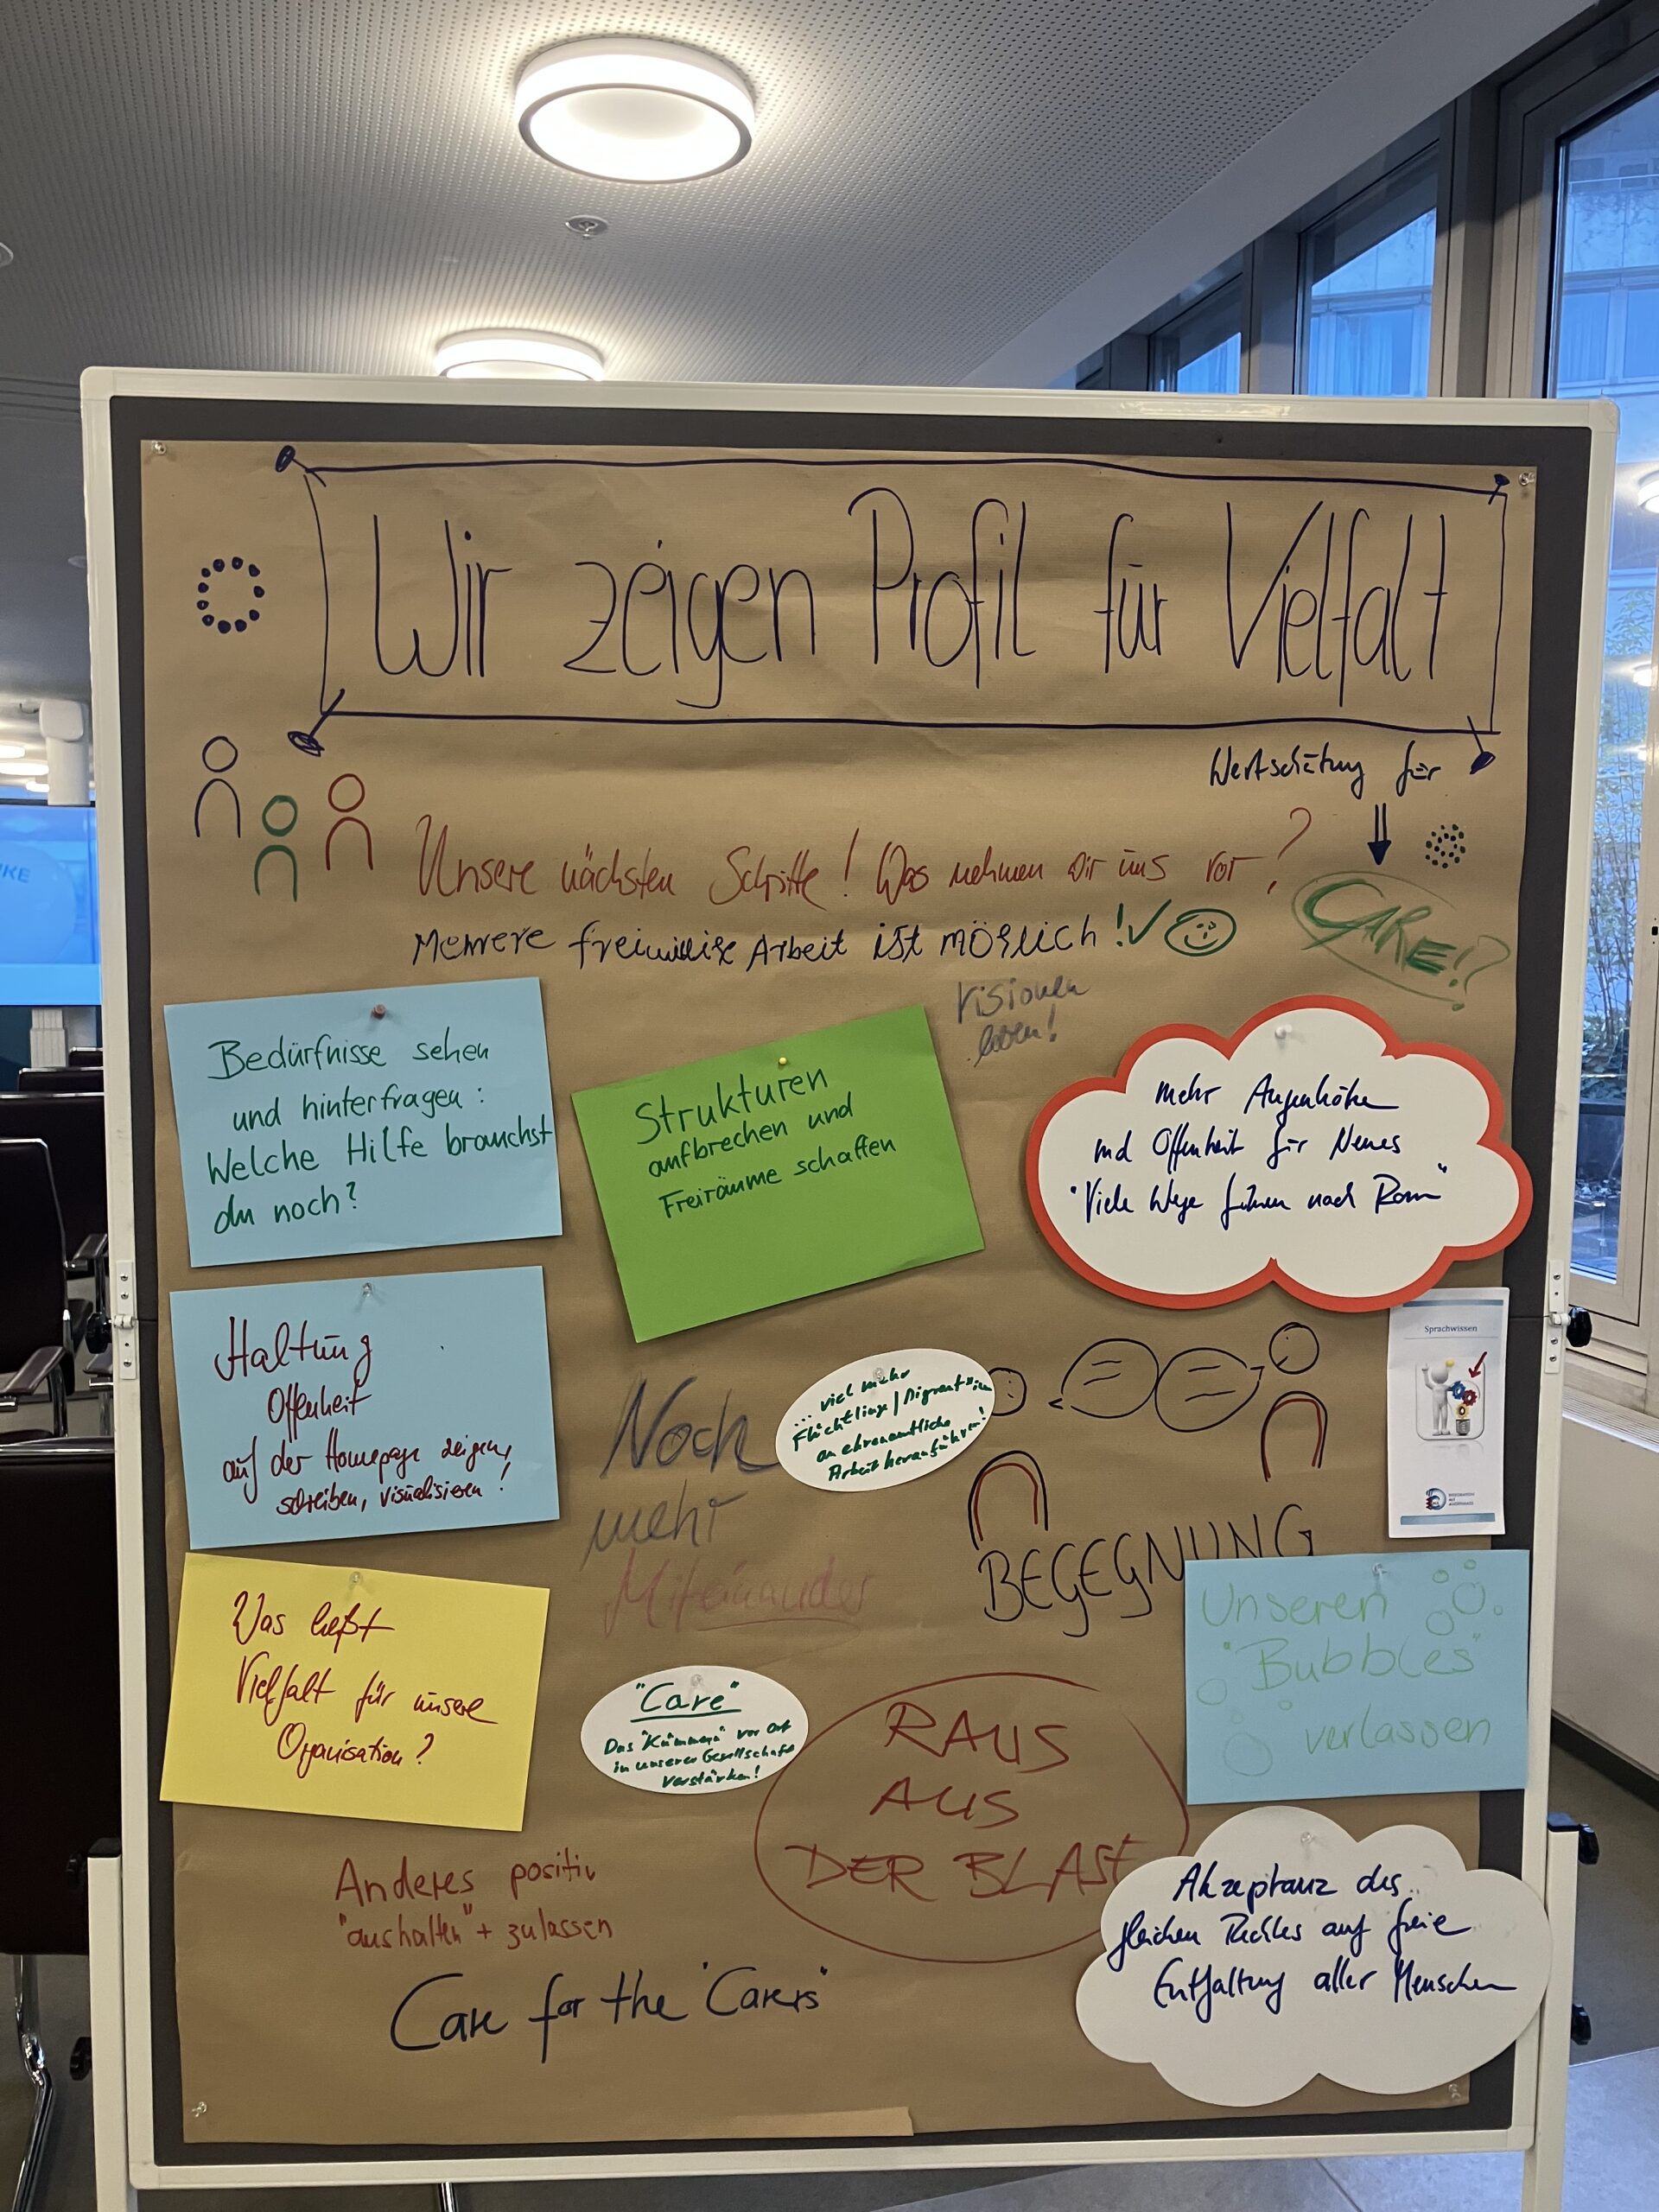 Wir zeigen Profil für Vielfalt
Wertschätung für
Unsere nächsten Schritte! Was nehmen wir uns vor?
CARE!?
Mehrere freiwillige Arbeit ist möglich!
Visionen
leben!
Bedürfnisse sehen
und hinterfragen:
Welche Hilfe brauchst
du noch?
Strukturen
aufbrechen und
Freiräume schaffen
mehr Augenhöhe
und Offenheit für Neues
"Viele Wege führen nach Rom"
Haltung
Offenheit
auf der Homepage zeigen,
schreiben, visualisieren!
Noch
mehr
Miteinander
... viel mehr
Flüchtlinge/Migrant*innen
an ehrenamtliche
Arbeit heranführen!
BEGEGNUNG
Sprachwissen
Was heißt
Vielfalt für unsere
Organisation?
"Care"
Das "Kümmern" vor Ort
in unserer Gesellschaft
verstärken!
RAUS
AUS
DER BLASE
Unseren
"Bubbles"
verlassen
Anderes positiv
"aushalten" + zulassen
Care for the "Carers"
Akzeptanz des
gleichen Rechtes auf freie
Entfaltung aller Menschen